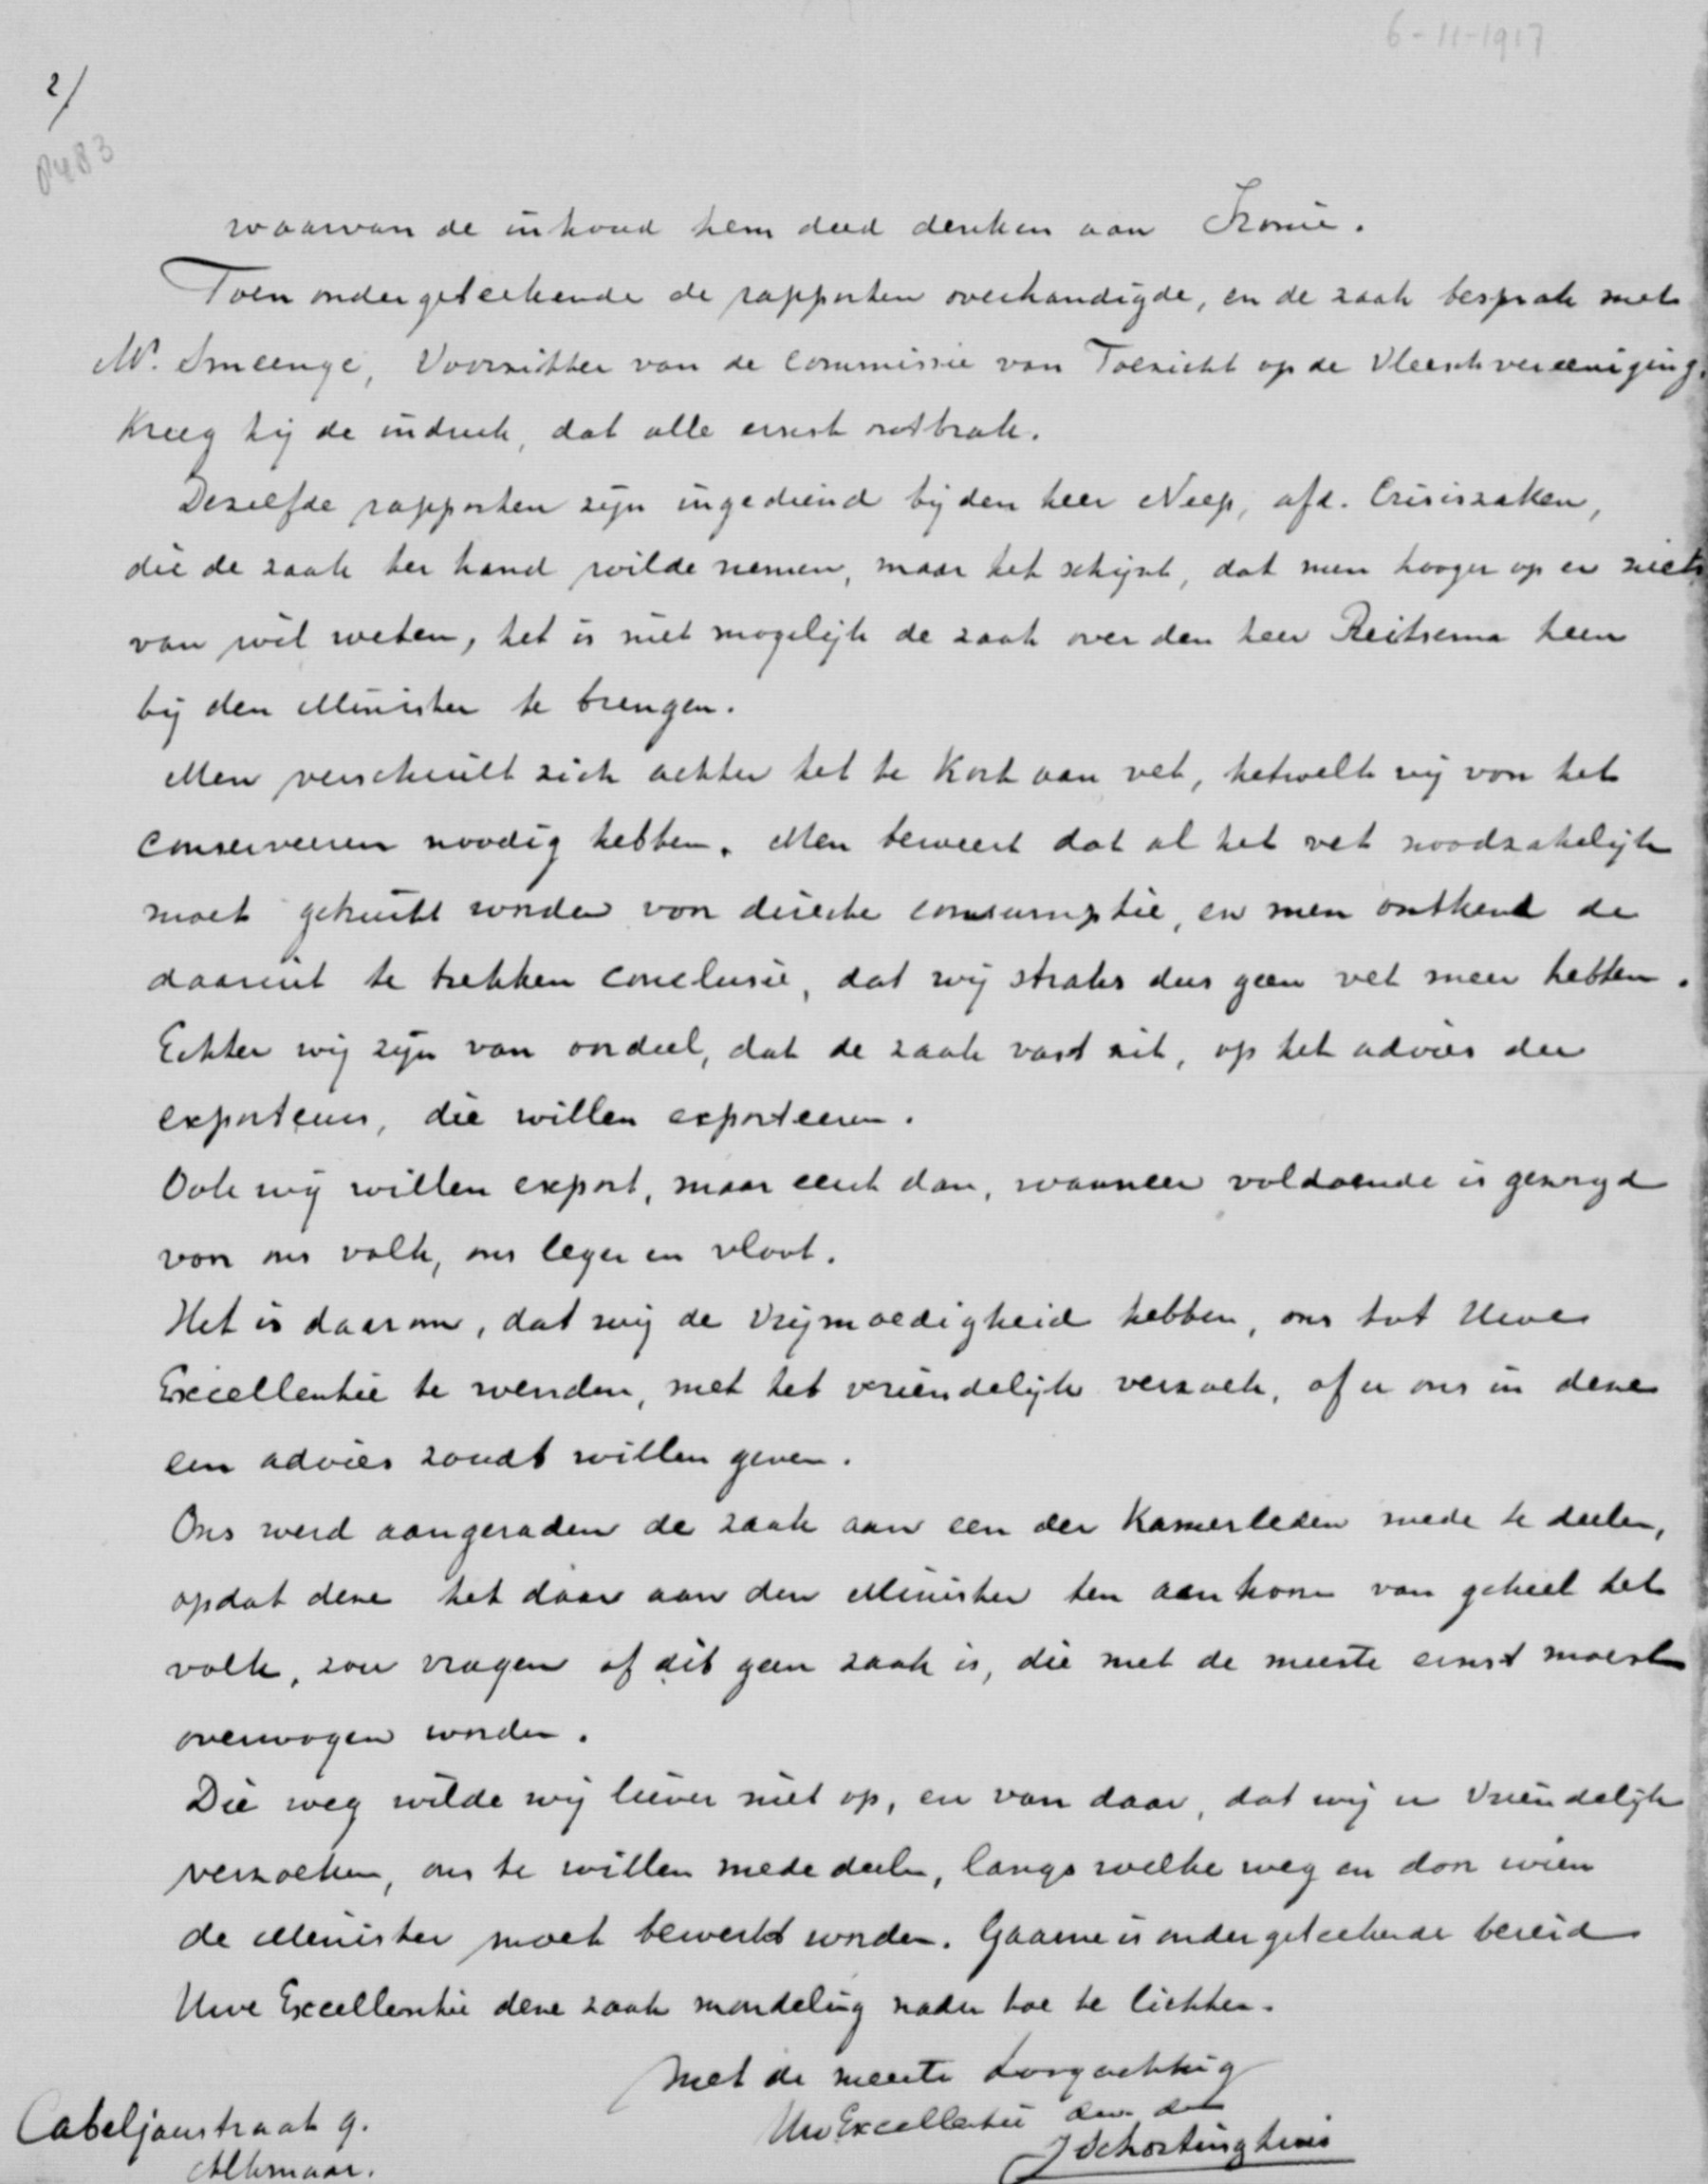 6-11-1917
2/
0483
waarvan de inhoud hem deed denken aan Ironie.
Toen ondergeteekende de rapporten overhandigde, en de zaak besprak met
Mr. Smeenge, Voorzitter van de Commissie van Toezicht op de Vleeschvereeniging,
kreeg hij de indruk, dat alle ernst ontbrak.
Dezelfde rapporten zijn ingediend bij den heer Neep, afd. Crisiszaken,
die de zaak ter hand wilde nemen, maar het schijnt, dat men hooger op er niets
van wil weten, het is niet mogelijk de zaak over den heer Reitsema heen
bij den Minister te brengen.
Men verschuilt zich achter het te kort aan vet, hetwelk wij voor het
conserveeren noodig hebben. Men beweert dat al het vet noodzakelijk
moet gebruikt worden voor directe consumptie, en men ontkend de
daaruit te trekken conclusie, dat wij straks dus geen vet meer hebben.
Echter wij zijn van oordeel, dat de zaak vast zit, op het advies der
exporteurs, die willen exporteeren.
Ook wij willen export, maar eerst dan, wanneer voldoende is gezorgd
voor ons volk, ons leger en vloot.
Het is daarom, dat wij de Vrijmoedigheid hebben, ons tot Uwe
Excellentie te wenden, met het vriendelijk verzoek, of u ons in deze
een advies zoudt willen geven.
Ons werd aangeraden de zaak aan een der Kamerleden mede te deelen,
opdat deze het daar aan den Minister ten aanhoore van geheel het
volk, zou vragen of dit geen zaak is, die met de meeste ernst moest
overwogen worden.
Die weg wilde wij liever niet op, en van daar, dat wij u Vriendelijk
verzoeken, ons te willen mede deelen, langs welke weg en door wien
de Minister moet bewerkt worden. Gaarne is ondergeteekende bereid
Uwe Excellentie deze zaak mondeling nader toe te lichten.
Met de meeste Hoogachting
Uw Excellentie dw. dr
J Schortinghuis
Cabeljaustraat 9.
Alkmaar.